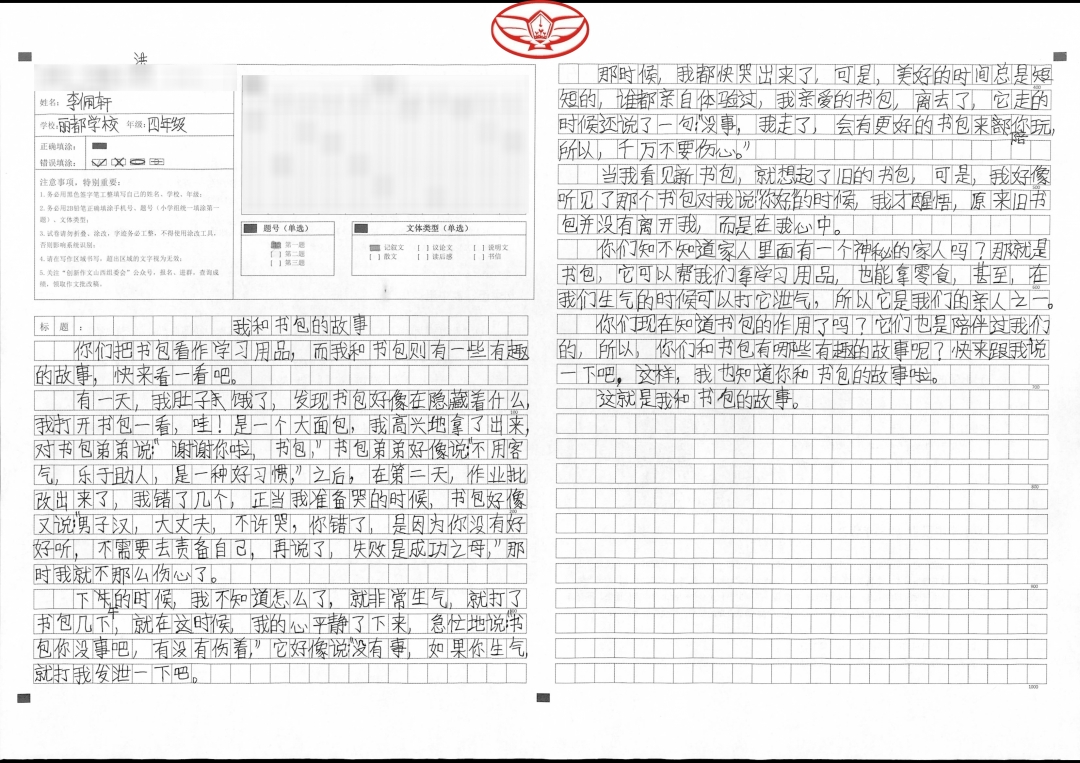 洪
姓名：李佩轩
学校：丽都学校 年级：四年级
正确填涂：
错误填涂：
注意事项，特别重要：
1.务必用黑色签字笔工整填写自己的姓名、学校、年级；
2.务必用2B铅笔正确填涂手机号、题号（小学组统一填涂第一
题）、文体类型；
3.试卷请勿折叠、涂改，字迹务必工整，不得使用涂改工具，
否则影响系统识别；
4.请在写作区域书写，超出区域的文字视为无效；
5.关注“创新作文山西组委会”公众号，报名、追群、查询成
绩、领取作文批改稿。
题号（单选）
第一题
[ ] 第二题
[ ] 第三题
文体类型（单选）
记叙文 [ ] 议论文 [ ] 说明文
[ ] 散文 [ ] 读后感 [ ] 书信
标 题：我和书包的故事
你们把书包看作学习用品，而我和书包则有一些有趣
的故事，快来看一看吧。
有一天，我肚子饿了，发现书包好像在隐藏着什么，
我打开书包一看，哇！是一个大面包，我高兴地拿了出来，
对书包弟弟说：“谢谢你啦，书包，”书包弟弟好像说：“不用客
气，乐于助人，是一种好习惯，”之后，在第二天，作业批
改出来了，我错了几个，正当我准备哭的时候，书包好像
又说：“男子汉，大丈夫，不许哭，你错了，是因为你没有好
好听，不需要去责备自己，再说了，失败是成功之母，”那
时我就不那么伤心了。
下午的时候，我不知道怎么了，就非常生气，就打了
书包几下，就在这时候，我的心平静了下来，急忙地说：“书
包你没事吧，有没有伤着，”它好像说：“没有事，如果你生气，
就打我发泄一下吧。
那时候，我都快哭出来了，可是，美好的时间总是短
短的，谁都亲自体验过，我亲爱的书包，离去了，它走的
时候还说了一句：“没事，我走了，会有更好的书包来陪你玩，
所以，千万不要伤心。”
当我看见新书包，就想起了旧的书包，可是，我好像
听见了那个书包对我说“你好”的时候，我才醒悟，原来旧书
包并没有离开我，而是在我心中。
你们知不知道家人里面有一个神秘的家人吗？那就是
书包，它可以帮我们拿学习用品，也能拿零食，甚至，在
我们生气的时候可以打它泄气，所以它是我们的亲人之一。
你们现在知道书包的作用了吗？它们也是陪伴过我们
的，所以，你们和书包有哪些有趣的故事呢？快来跟我说
一下吧，这样，我也知道你和书包的故事啦。
这就是我和书包的故事。